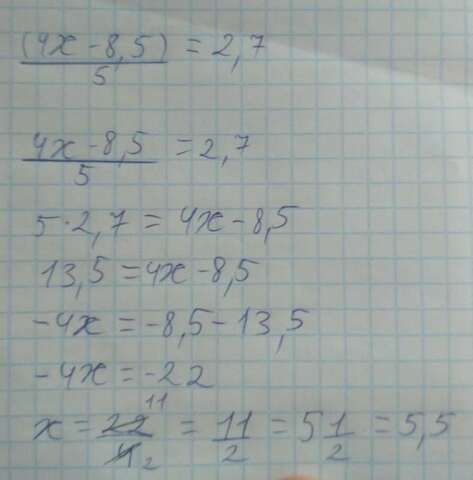 (4x - 8,5)/5 = 2,7
4x - 8,5/5 = 2,7
5·2,7 = 4x - 8,5
13,5 = 4x - 8,5
-4x = -8,5 - 13,5
-4x = -22
x = 22 11/4 2 = 11/2 = 5 1/2 = 5,5